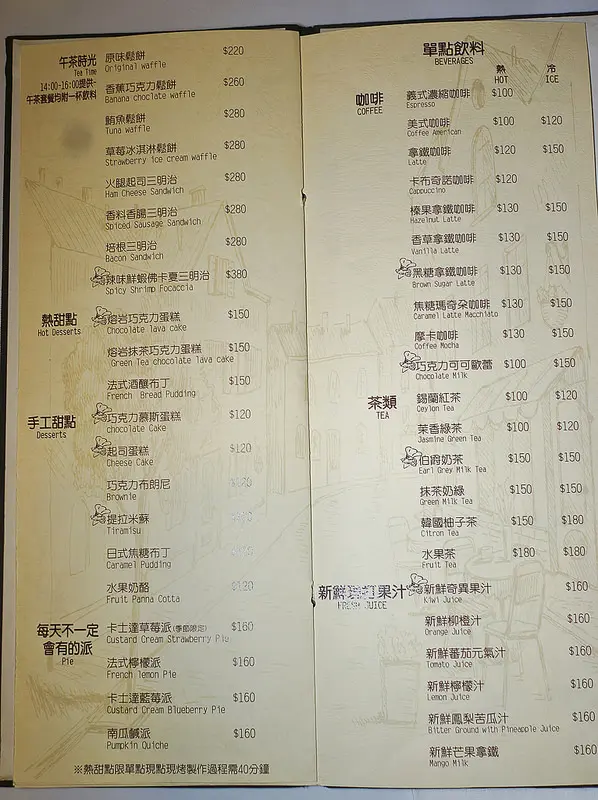 午茶時光
Tea Time
14:00-16:00提供~
午茶套餐均附一杯飲料
原味鬆餅 $220
Original waffle
香蕉巧克力鬆餅 $260
Banana choclate waffle
鮪魚鬆餅 $280
Tuna waffle
草莓冰淇淋鬆餅 $280
Strawberry ice cream waffle
火腿起司三明治 $280
Ham Cheese Sandwich
香料香腸三明治 $280
Spiced Sausage Sandwich
培根三明治 $280
Bacon Sandwich
辣味鮮蝦佛卡夏三明治 $380
Spicy Shrimp Focaccia
熱甜點
Hot Desserts
熔岩巧克力蛋糕 $150
Chocolate lava cake
熔岩抹茶巧克力蛋糕 $150
Green Tea chocolate lava cake
法式酒釀布丁 $150
French Bread Pudding
手工甜點
Desserts
巧克力慕斯蛋糕 $120
chocolate Cake
起司蛋糕 $120
Cheese Cake
巧克力布朗尼
Brownie
提拉米蘇
Tiramisu
日式焦糖布丁
Caramel Pudding
水果奶酪 $120
Fruit Panna Cotta
每天不一定
會有的派
Pie
卡士達草莓派(季節限定) $160
Custard Cream Strawberry Pie
法式檸檬派 $160
French lemon Pie
卡士達藍莓派 $160
Custard Cream Blueberry Pie
南瓜鹹派 $160
Pumpkin Quiche
※熱甜點限單點現點現烤製作過程需40分鐘
單點飲料
BEVERAGES
熱 冷
HOT ICE
咖啡
COFFEE
義式濃縮咖啡 $100
Espresso
美式咖啡 $100 $120
Coffee American
拿鐵咖啡 $120 $150
Latte
卡布奇諾咖啡 $120
Cappuccino
榛果拿鐵咖啡 $130 $150
Hazelnut Latte
香草拿鐵咖啡 $130 $150
Vanilla Latte
黑糖拿鐵咖啡 $130 $150
Brown Sugar Latte
焦糖瑪奇朵咖啡 $130 $150
Caramel Latte Macchiato
摩卡咖啡 $130 $150
Coffee Mocha
巧克力可可歐蕾 $100 $150
Chocolate Milk
茶類
TEA
錫蘭紅茶 $100 $120
Ceylon Tea
茉香綠茶 $100 $120
Jasmine Green Tea
伯爵奶茶 $150 $150
Earl Grey Milk Tea
抹茶奶綠 $150 $150
Green Milk Tea
韓國柚子茶 $150 $180
Citron Tea
水果茶 $180 $180
Fruit Tea
新鮮現打果汁
FRESH JUICE
新鮮奇異果汁 $160
Kiwi Juice
新鮮柳橙汁 $160
Orange Juice
新鮮蕃茄元氣汁 $160
Tomato Juice
新鮮檸檬汁 $160
Lemon Juice
新鮮鳳梨苦瓜汁 $160
Bitter Ground with Pineapple Juice
新鮮芒果拿鐵 $160
Mango Milk